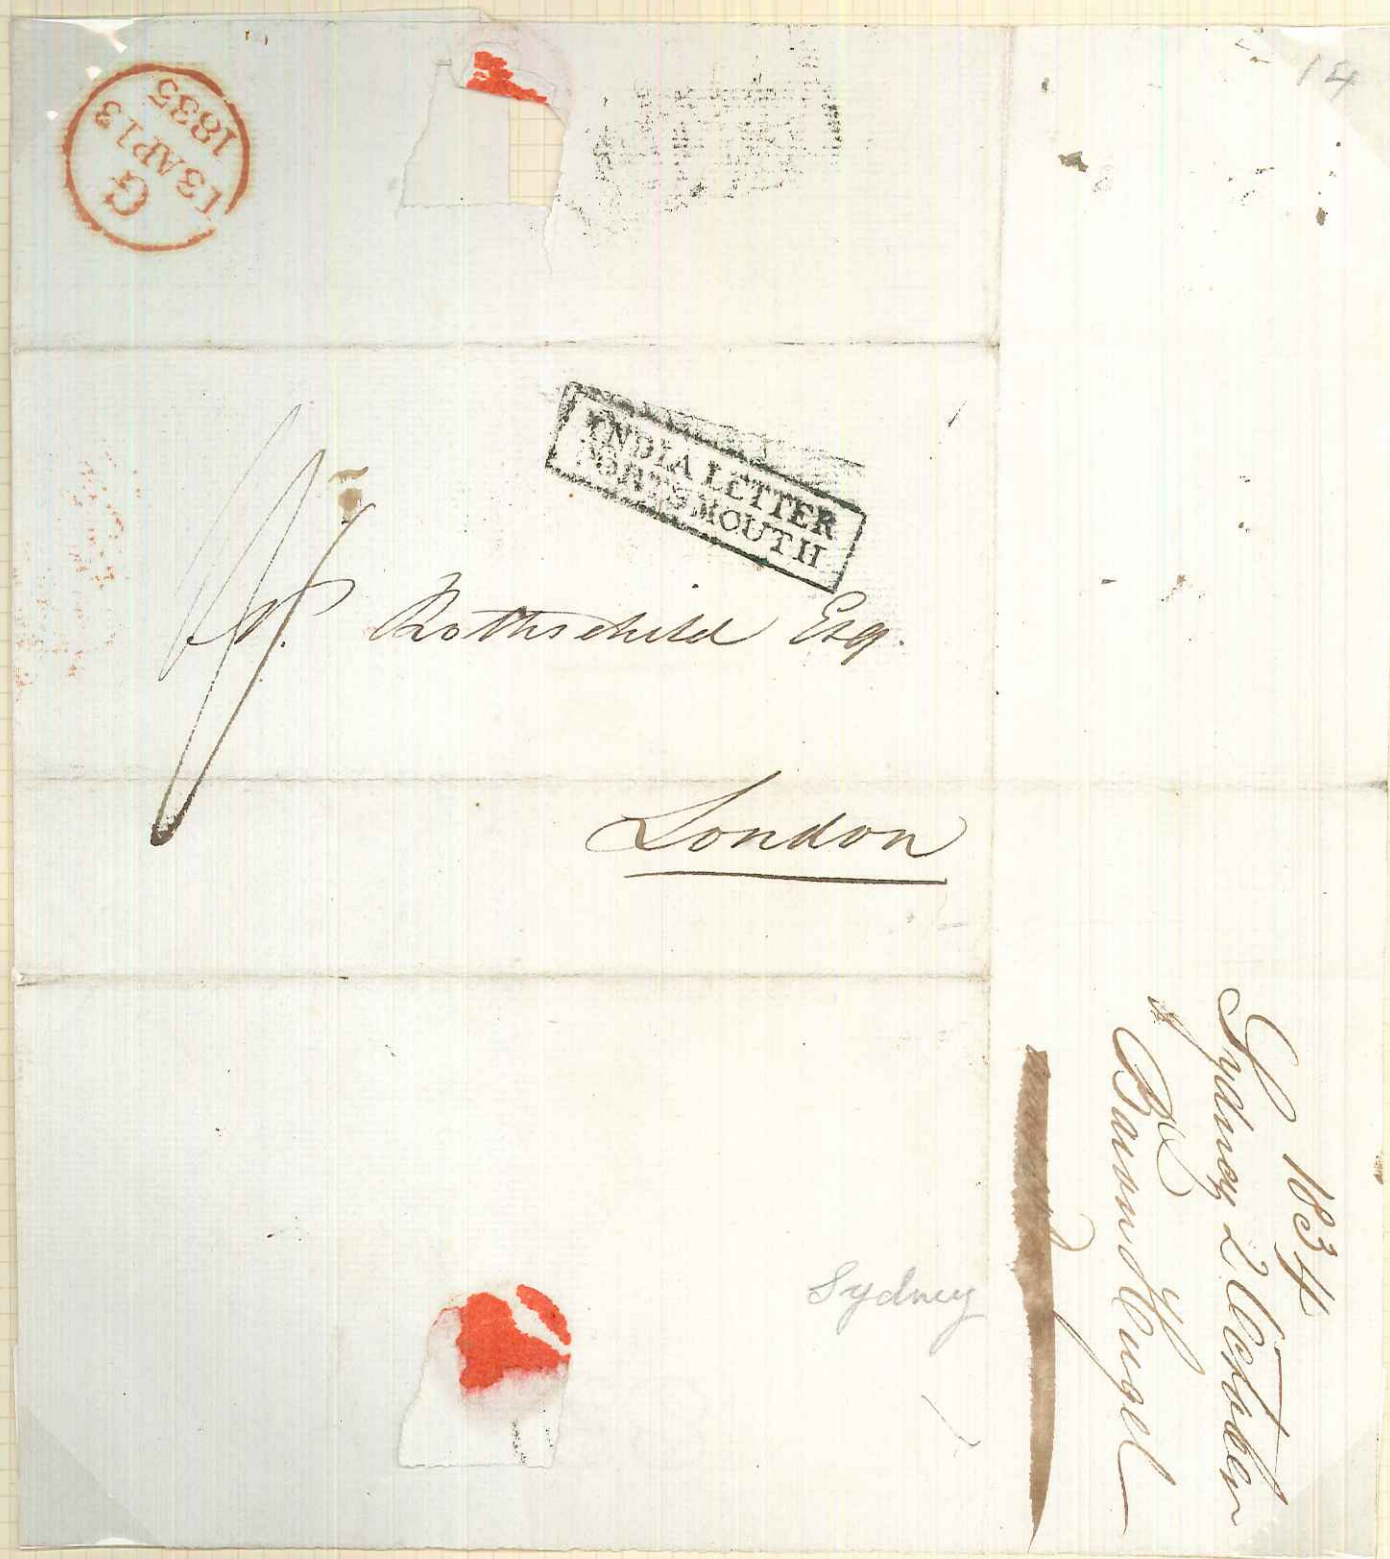 14
G
13 AP 13
1835
INDIA LETTER
PORTSMOUTH
N. Rothschild Esq.
London
Sydney
1834
Sydney 2 October
Baron Hugel